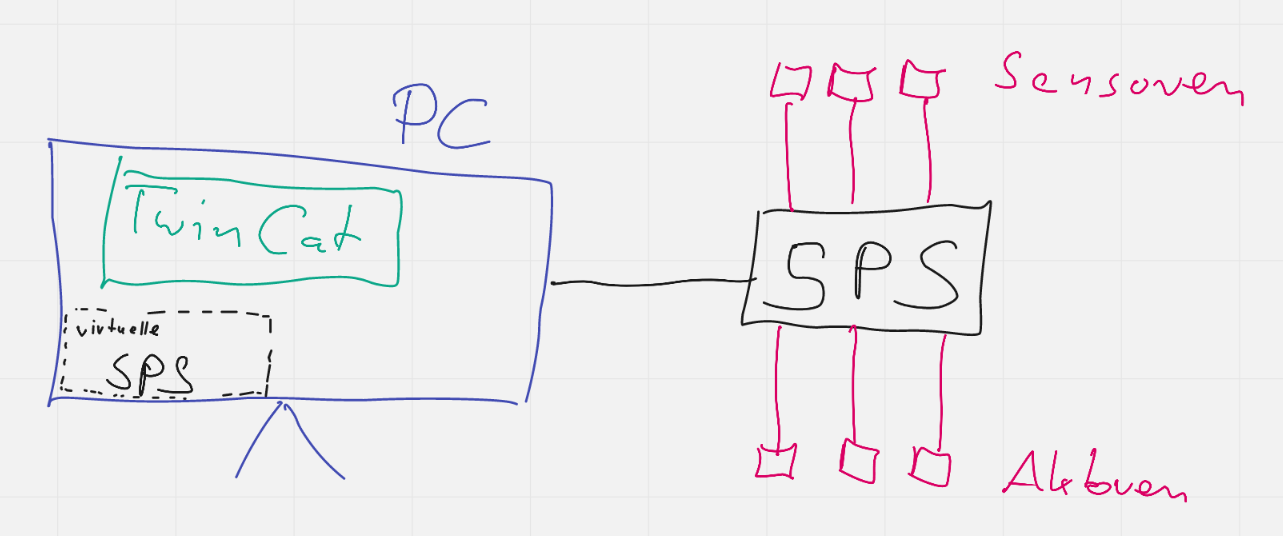 PC
TwinCat
virtuelle
SPS
SPS
Sensoren
Aktoren